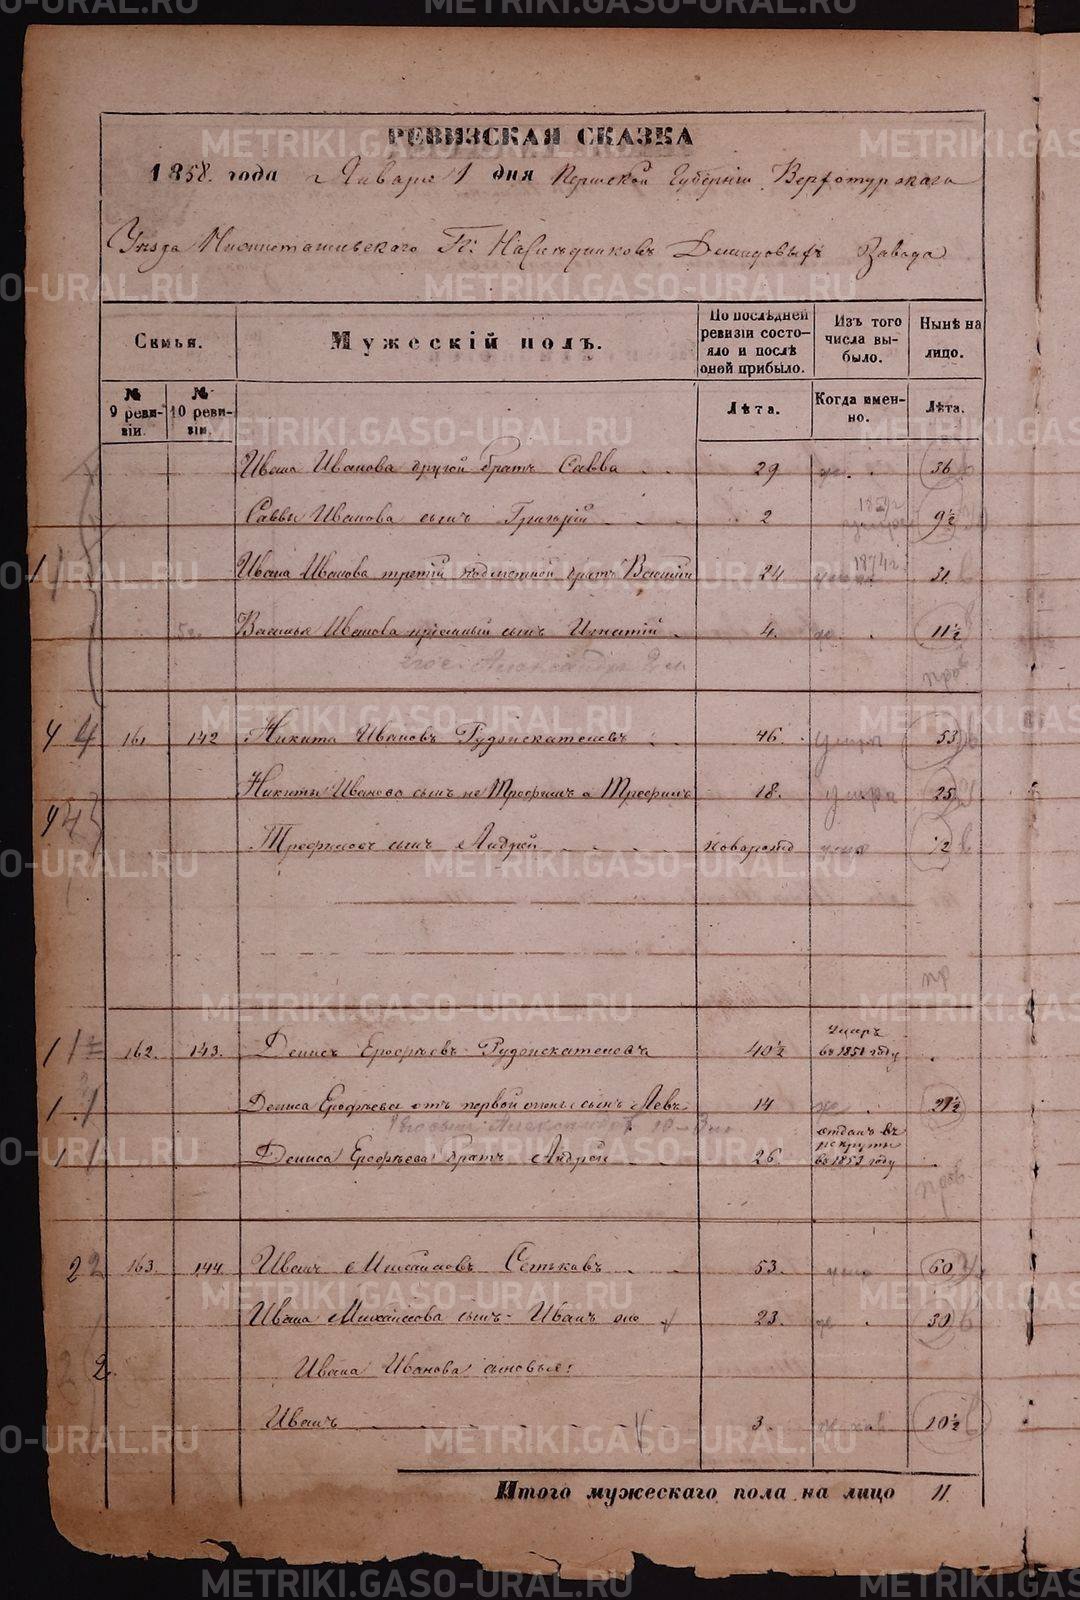 РЕВИЗСКАЯ СКАЗКА
1858. года Января 1 дня Пермской Губерніи Верхотурскаго
Уѣзда Нижнетагильскаго Гг: Наслѣдниковъ Демидовыхъ Завода
Семья.
Мужескій полъ.
По послѣдней ревизіи состояло и послѣ оней прибыло.
Изъ того числа выбыло.
Нынѣ на лицо.
№ 9 ревизіи.
№ 10 ревизіи.
Лѣта.
Когда именно.
Лѣта.
Ивана Иванова другой братъ Савва 29 36
Саввы Иванова сынъ Григорій 2 9½
Ивана Иванова третій братъ Василій 24 1874 г. 31
Василья Иванова сынъ Игнатій 4. 11½
его с. Александръ 2 м
4 161 142 Никита Ивановъ Рудоискателевъ 46. умеръ 53
Никиты Иванова сынъ не Трофимъ а Трефилъ 18. умеръ 25
Трефиловъ сынъ Андрей новорожд ½
1 162. 143. Денисъ Ерофѣевъ Рудоискателевъ 40½ умеръ въ 1851 году
1 Дениса Ерофѣева отъ первой жены сынъ Левъ 14 21½
1 Дениса Ерофѣева братъ Андрей 26. отданъ въ рекруты въ 1853 году
2 163. 144. Иванъ Михайловъ Сетьковъ 53. 60
Ивана Михайлова сынъ Иванъ 23. 30
2. Ивана Иванова сыновья:
Иванъ 3. 10½
Итого мужескаго пола на лицо 11.
METRIKI.GASO-URAL.RU